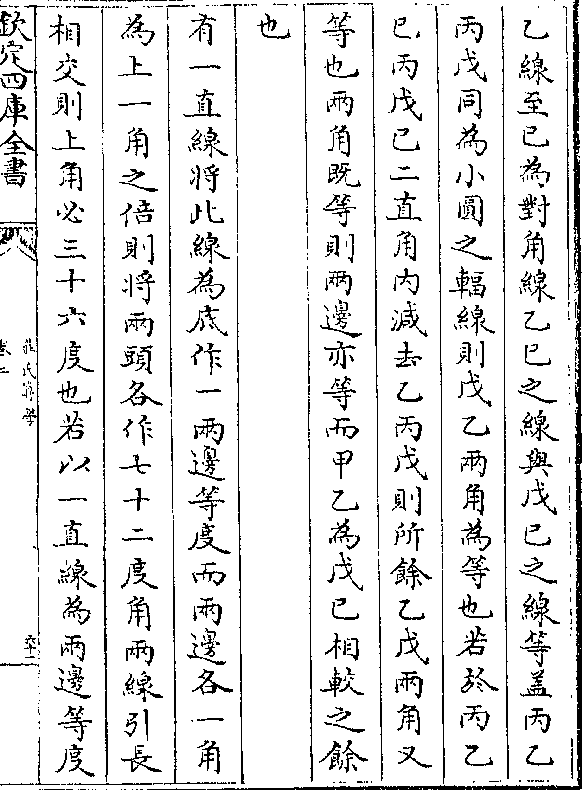 乙線至已為對角線乙巳之線與戊巳之線等盖丙乙
丙戊同為小圓之輻線則戊乙兩角為等也若於丙乙
巳丙戊巳二直角内減去乙丙戊則所餘乙戊兩角又
等也兩角既等則兩邊亦等而甲乙為戊巳相較之餘
也
有一直線將此線為底作一兩邊等度而兩邊各一角
為上一角之倍則將兩頭各作七十二度角兩線引長
相交則上角必三十六度也若以一直線為兩邊等度
欽定四庫全書
莊氏算學
卷二